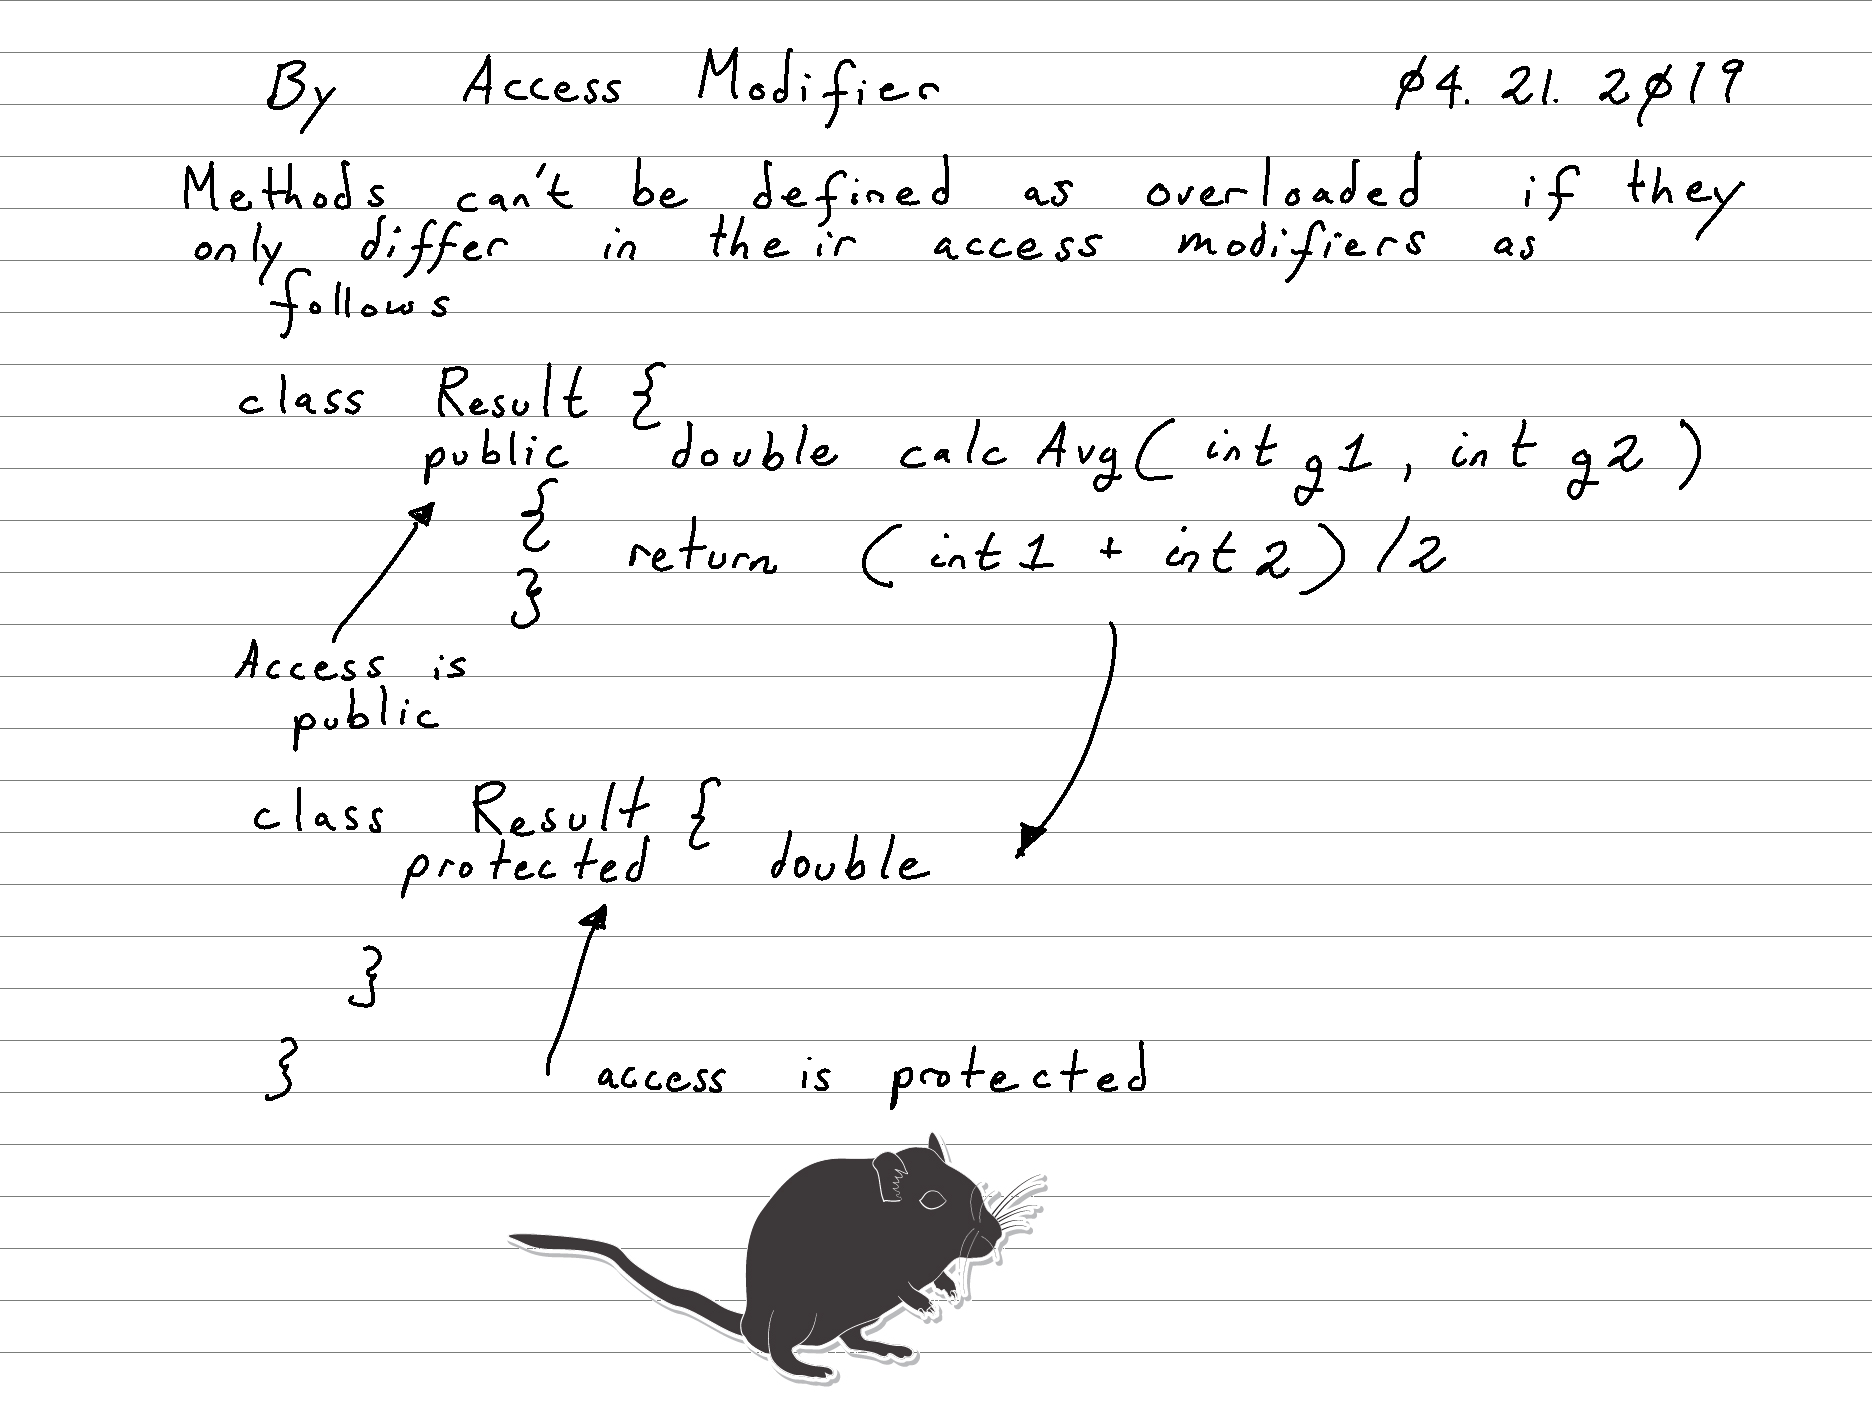 By Access Modifier 04.21.2019
Methods can't be defined as overloaded if they
only differ in their access modifiers as
follows
class Result {
public double calcAvg( int g1, int g2 )
{
return ( int1 + int2 ) /2
}
Access is
public
class Result {
protected double
}
}
access is protected